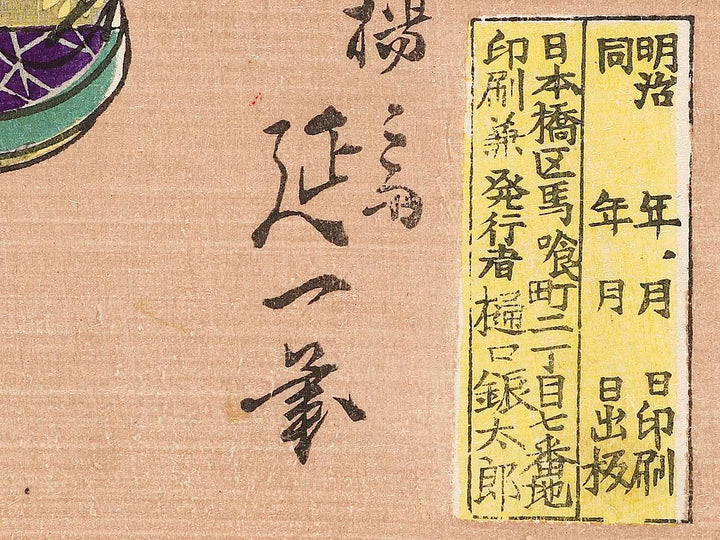 明治　年　月　日印刷
同　年　月　日出板
日本橋区馬喰町二丁目七番地
印刷兼発行者樋口銀太郎
楊斎
延一筆